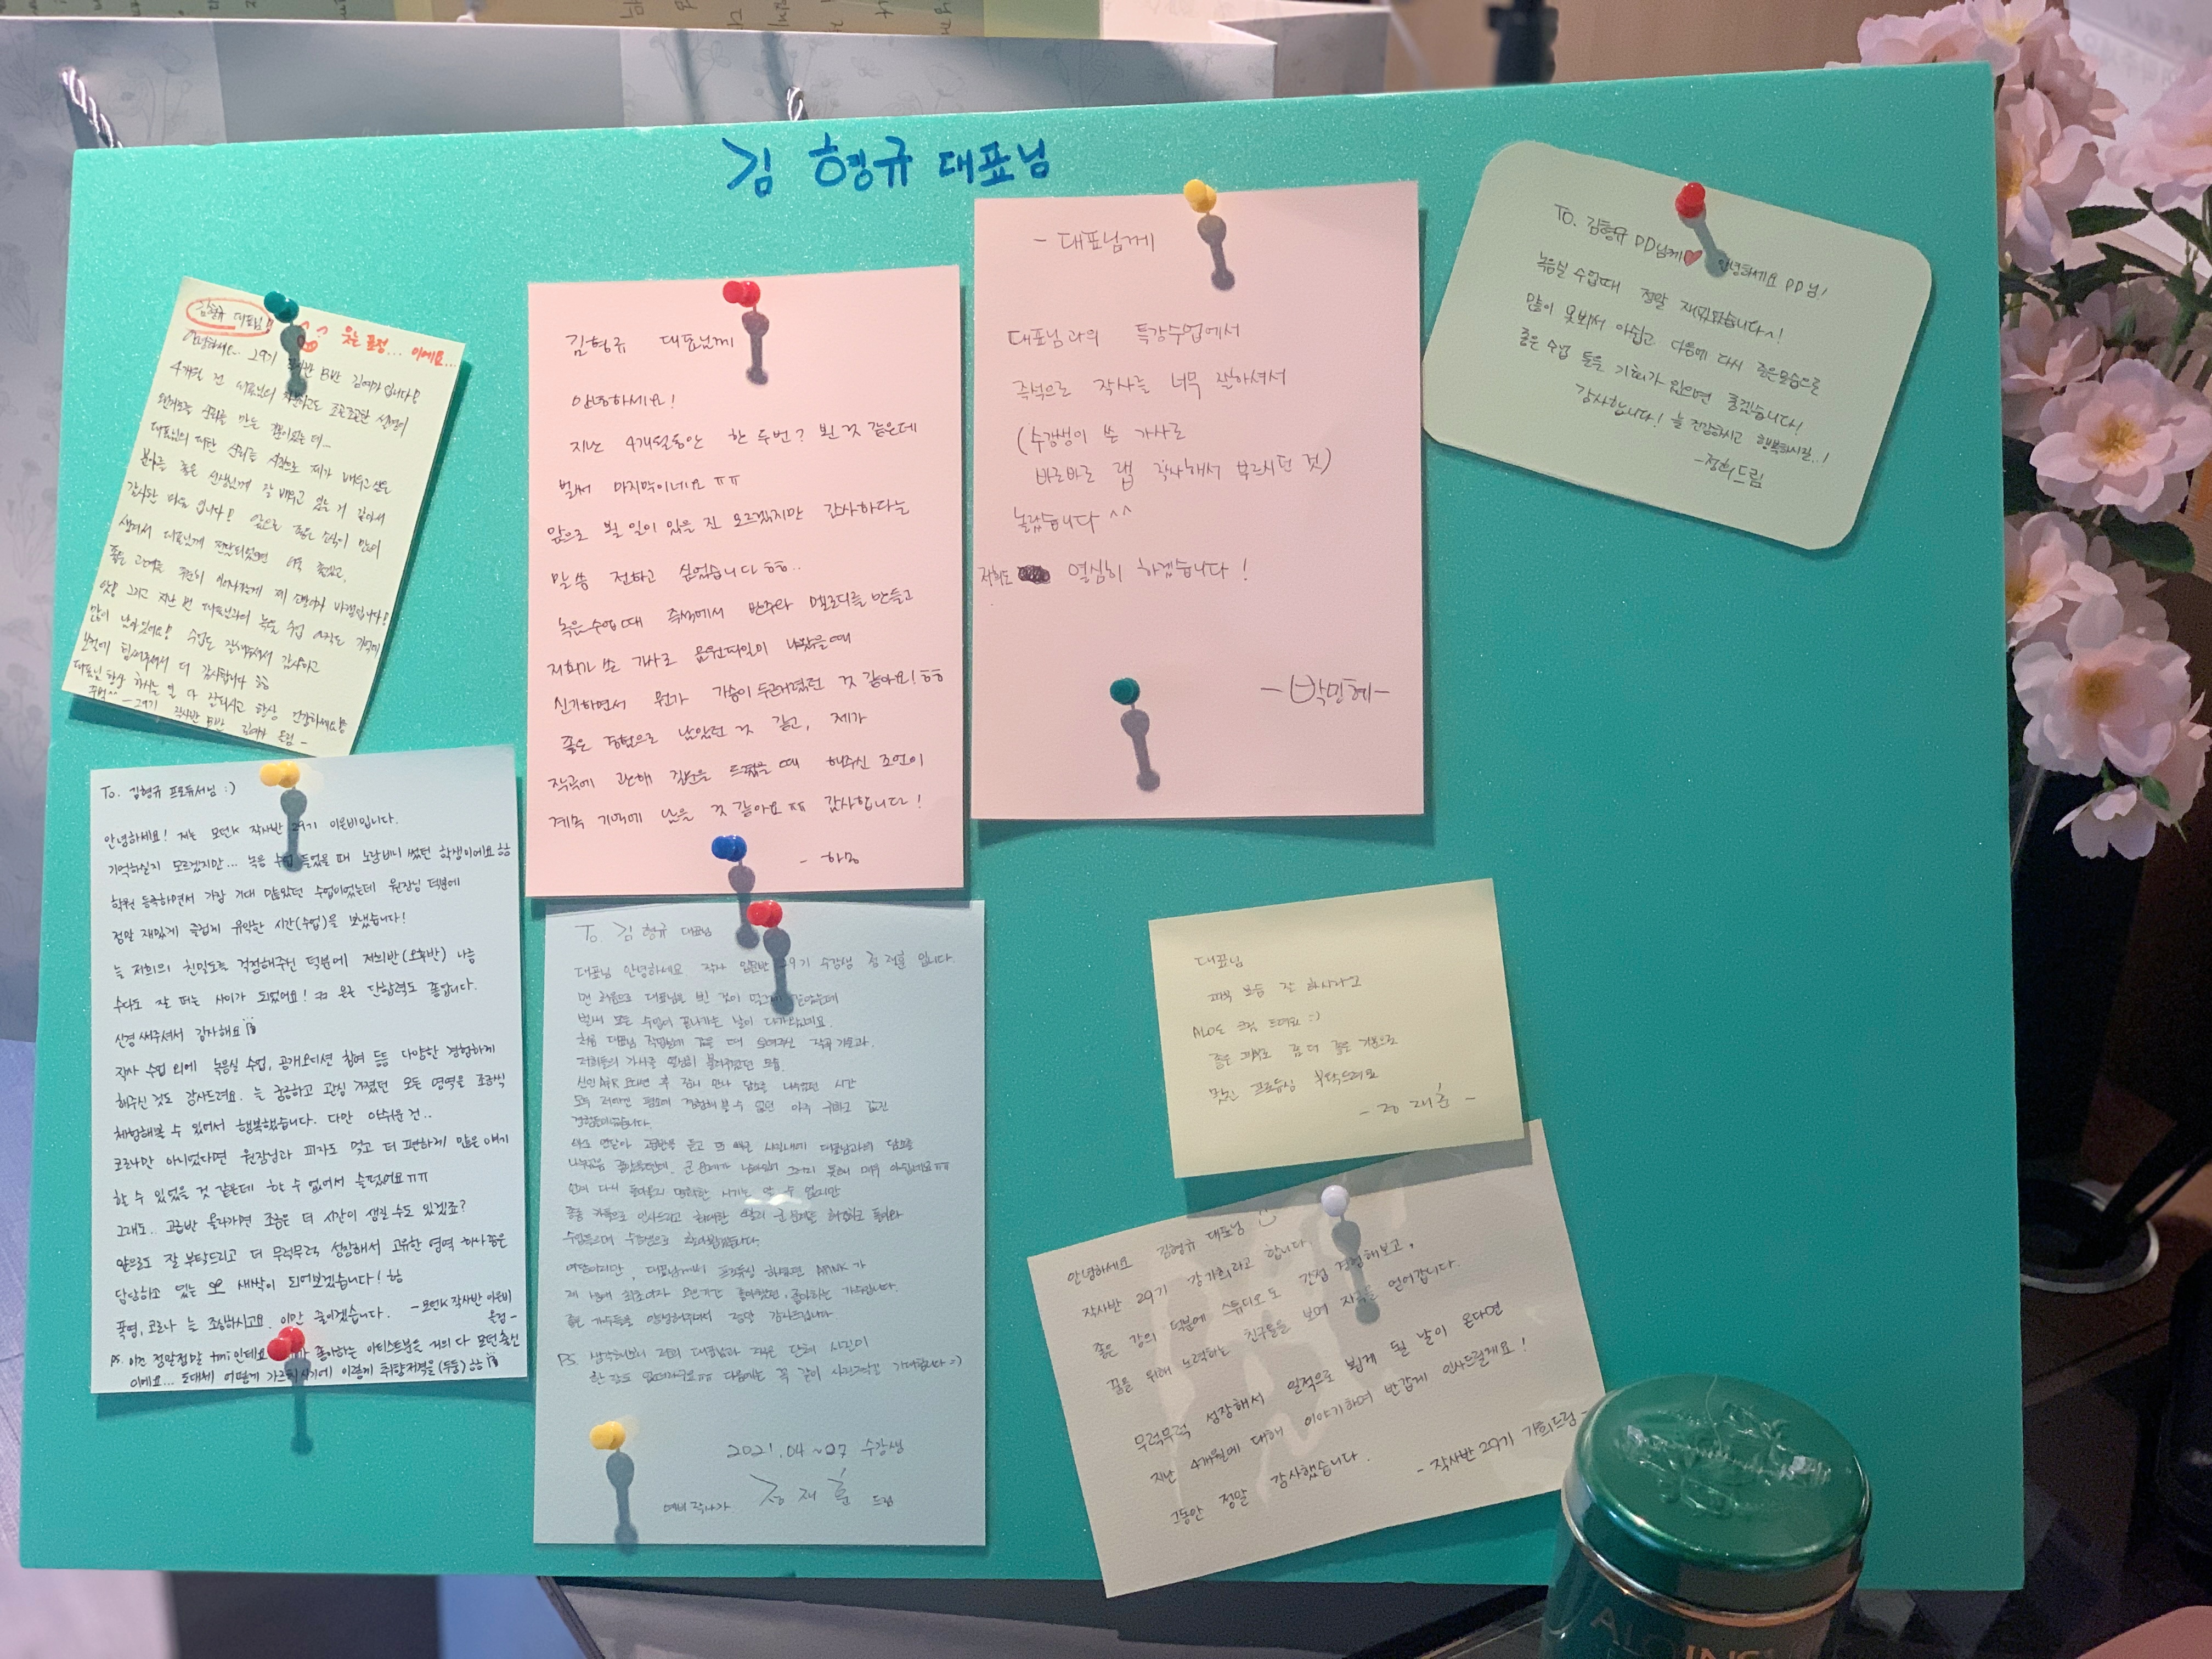 김 형규 대표님
김형규 대표님!!
웃는 표정... 이에요...
안녕하세요... 29기 작사반 B반 김예가입니다!
4개월 전 대표님의 차분하고도 조곤조곤한 설명이
대표님의 대단
분야를 좋은 선생님께 잘 배우고 있는 거 같아서
감사한 마음 입니다! 앞으로 좋은 소식이 많이
생겨서 대표님께 전달되었으면 더욱 좋겠고,
좋은 관계를 꾸준히 이어나가는게 제 소망이자 바램입니다!
앗! 그리고 지난 번 대표님과의 녹음 수업 아직도 기억에
많이 남아있어요! 수업도 잘해주셔서 감사하고
힘써주셔서 더 감사합니다 ㅎㅎ
대표님 항상 하시는 일 다 잘되시고 항상 건강하세요!!
- 29기 작사반 B반 김예가 올림 -
김형규 대표님께
안녕하세요!
지난 4개월동안 한 두번? 뵌 것 같은데
벌써 마지막이네요 ㅠㅠ
앞으로 뵐 일이 있을 진 모르겠지만 감사하다는
말씀 전하고 싶었습니다 ㅎㅎ..
녹음수업때 즉석에서 반주와 멜로디를 만들고
저희가 쓴 가사로 음원파일이 나왔을때
신기하면서 뭔가 가슴이 두근거렸던 것 같아요! ㅎㅎ
좋은 경험으로 남았던 것 같고, 제가
작곡에 관해 질문을 드렸을 때 해주신 조언이
계속 기억에 남을 것 같아요 ㅠㅠ 감사합니다!
- 대표님께
대표님과의 특강수업에서
즉석으로 작사를 너무 잘하셔서
(수강생이 쓴 가사로
바로바로 랩 작사해서 부르시던 것)
놀랐습니다 ^^
저희도 열심히 하겠습니다!
- 박민혜 -
TO. 김형규 PD님께♥ 안녕하세요 PD님!
녹음실 수업때 정말 재밌었습니다~!
많이 못봬서 아쉽고 다음에 다시 좋은모습으로
좋은 수업 들을 기회가 있으면 좋겠습니다!
감사합니다! 늘 건강하시고 행복하시길..!
- 정희드림
To. 김형규 프로듀서님 :)
안녕하세요! 저는 모던K 작사반 29기 이은비입니다.
기억하실지 모르겠지만... 녹음 수업 들었을 때 노랑비니 썼던 학생이에요 ㅎㅎ
학원 등록하면서 가장 기대 많았던 수업이었는데 원장님 덕분에
정말 재밌게 즐겁게 유익한 시간(수업)을 보냈습니다!
늘 저희의 친밀도를 걱정해주신 덕분에 저희반(오후반) 나름
수다도 잘 떠는 사이가 되었어요! ㅋㅋ 온눈 단합력도 좋답니다.
신경써주셔서 감사해요
작사 수업 외에 녹음실 수업, 공개오디션 참여 등등 다양한 경험하게
해주신 것도 감사드려요. 늘 궁금하고 관심 가졌던 모든 영역을 조금씩
체험해볼 수 있어서 행복했습니다. 다만 아쉬운 건..
코로나만 아니었다면 원장님과 피자도 먹고 더 편하게 많은 얘기
할 수 있었을 것 같은데 할 수 없어서 슬펐어요 ㅠㅠ
그래도.. 고급반 올라가면 조금은 더 시간이 생길 수도 있겠죠?
앞으로도 잘 부탁드리고 더 무럭무럭 성장해서 고유한 영역 하나쯤은
담당하고 있는 새싹이 되어보겠습니다! ㅎㅎ
폭염, 코로나 늘 조심하시고요. 이만 줄이겠습니다. - 모던K 작사반 이은비
올림 -
ps. 이건 정말정말 tmi인데요 좋아하는 아티스트분은 거의 다 모던출신
이에요... 도대체 어떻게 가르치시기에 이렇게 취향저격을 (두둥) ㅎㅎ
To. 김 형규 대표님
대표님 안녕하세요. 작사 입문반 29기 수강생 정재훈 입니다.
맨 처음으로 대표님을 뵌 것이
벌써 모든 수업이 끝나가는 날이 다가왔네요.
저희들의 가사를 열심히 불러주셨던 모습,
언제 다시 돌아올지 명확한 시기는 알 수 없지만
여담이지만, 대표님께서 프로듀싱 하셨던 APINK 가
좋은 가수들을 만들어주셔서 정말 감사드립니다
PS. 생각해보니 저희 대표님과 찍은 단체 사진이
한 장도 없더라구요 ㅠㅠ 다음에는 꼭 같이 사진찍길 기대합니다 :)
2021.04 ~ 07 수강생
예비 작사가 정 재 훈 드림
대표님
피부 보습 잘 하시라고
ALOE 크림 드려요 :)
좋은 피부로 좀 더 좋은 기분으로
멋진 프로듀싱 부탁드려요
- 정 재 훈 -
안녕하세요 김형규 대표님
작사반 29기 강가희라고 합니다.
좋은 강의 덕분에 스튜디오도 간접 경험해보고,
꿈을 위해 노력하는 친구들을 보며 자극을 얻어갑니다.
무럭무럭 성장해서 일적으로 뵙게 될 날이 온다면
지난 4개월에 대해 이야기하며 반갑게 인사드릴게요!
그동안 정말 감사했습니다.
- 작사반 29기 가희드림 -